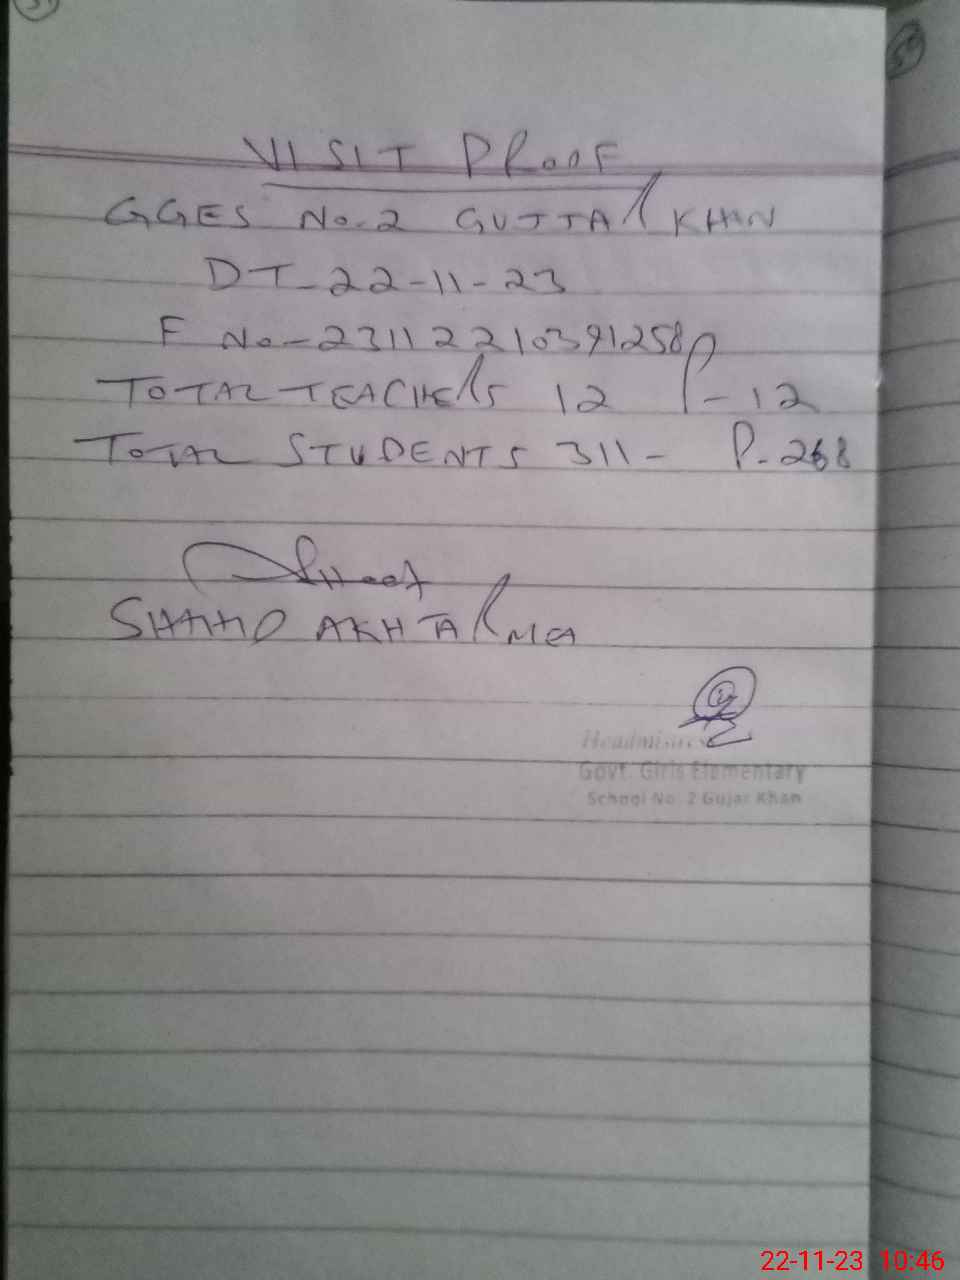 VISIT PROOF
GGES NO.2 GUJJAR KHAN
DT-22-11-23
F No-23112210391258
TOTAL TEACHERS 12 P-12
TOTAL STUDENTS 311- P-268
AKHTAR MEA
Headmistress
Govt. Girls Elementary
School No. 2 Gujar Khan
22-11-23 10:46